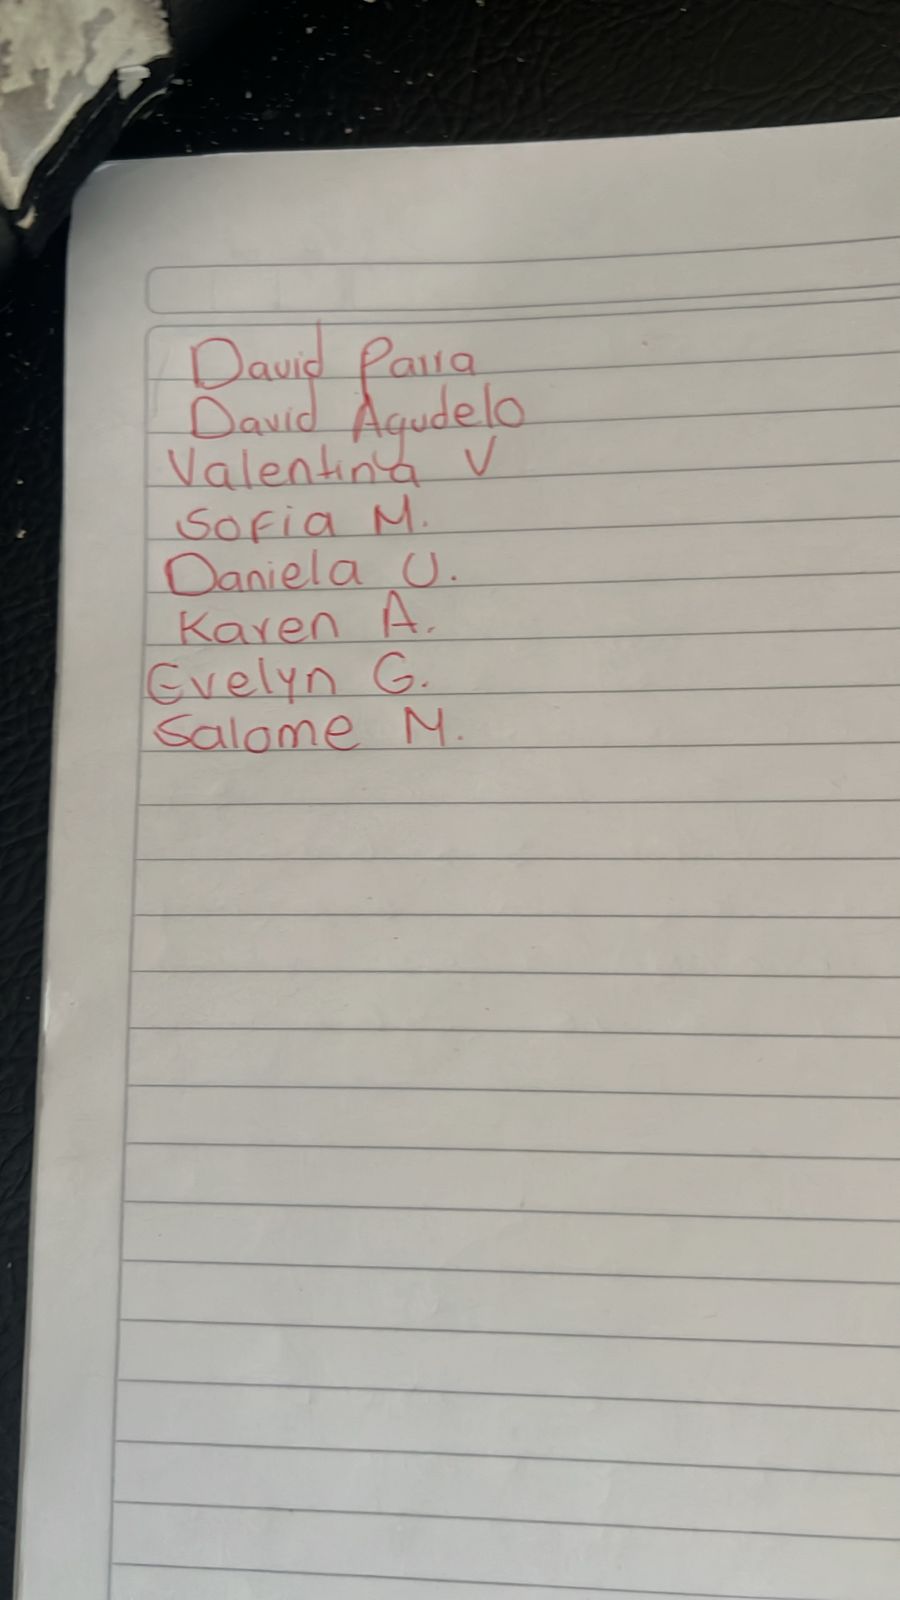 David Parra
David Agudelo
Valentina V
Sofia M.
Daniela U.
Karen A.
Evelyn G.
Salome M.